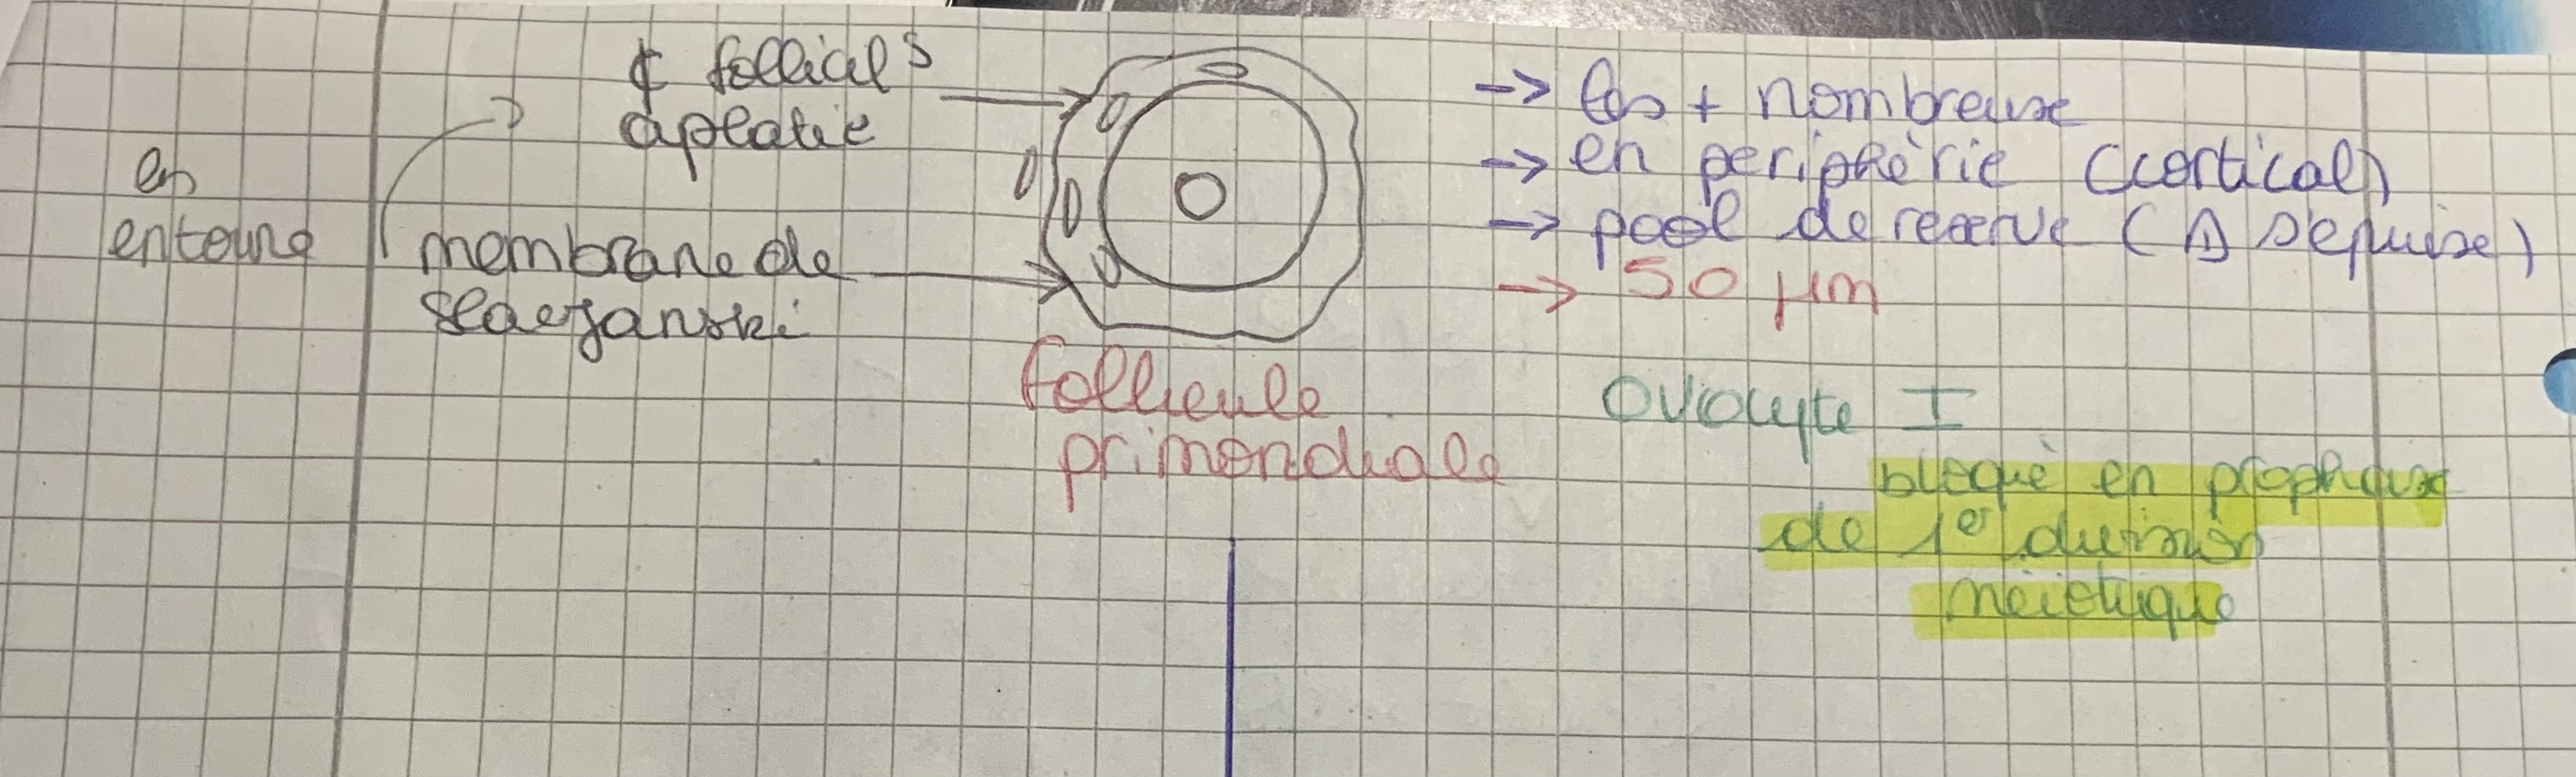 ¢ follicules
aplatie
les
entoure
membrane de
slaezanski
follicule
primondiale
-> les + nombreuse
-> en peripherie (cortical)
-> pool de reserve (⚠ s'epuise)
-> 50 µm
Oviocyte I
bloqué en prophase
de 1e division
méiotique